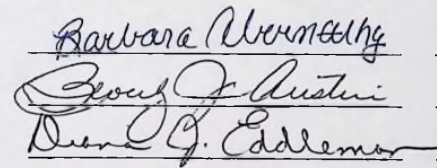 Barbara Abernethy
Beverly J. Austin
Diana J. Eddleman